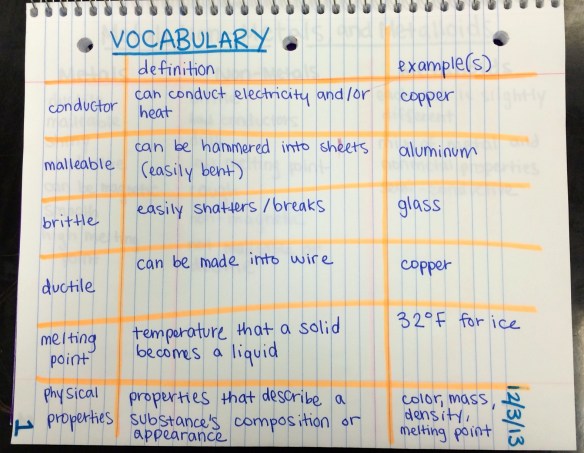 VOCABULARY
definition example(s)
conductor can conduct electricity and/or copper
heat
malleable can be hammered into sheets aluminum
(easily bent)
brittle easily shatters/breaks glass
ductile can be made into wire copper
melting temperature that a solid 32°F for ice
point becomes a liquid
physical properties that describe a color, mass,
properties substance's composition or density,
appearance melting point
1
12/3/13